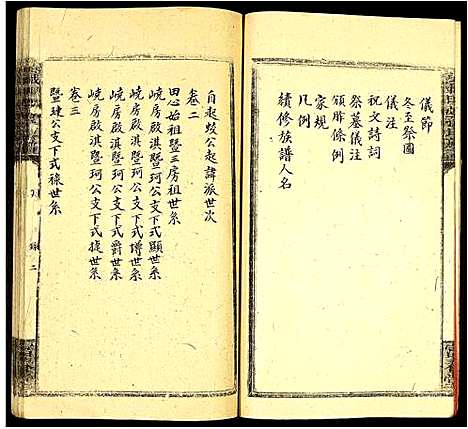 儀節
冬至祭圖
儀注
祝文詩詞
祭墓儀注
頒胙條例
家規
凡例
續修族譜人名
自起蛟公起諱派世次
卷二
田心始祖暨三房祖世系
嶢房啟淇暨珂公支下式顯世系
嶢房啟淇暨珂公支下式譜世系
嶢房啟淇暨珂公支下式爵世系
嶢房啟淇暨珂公支下式提世系
卷三
暨建公支下式祿世系